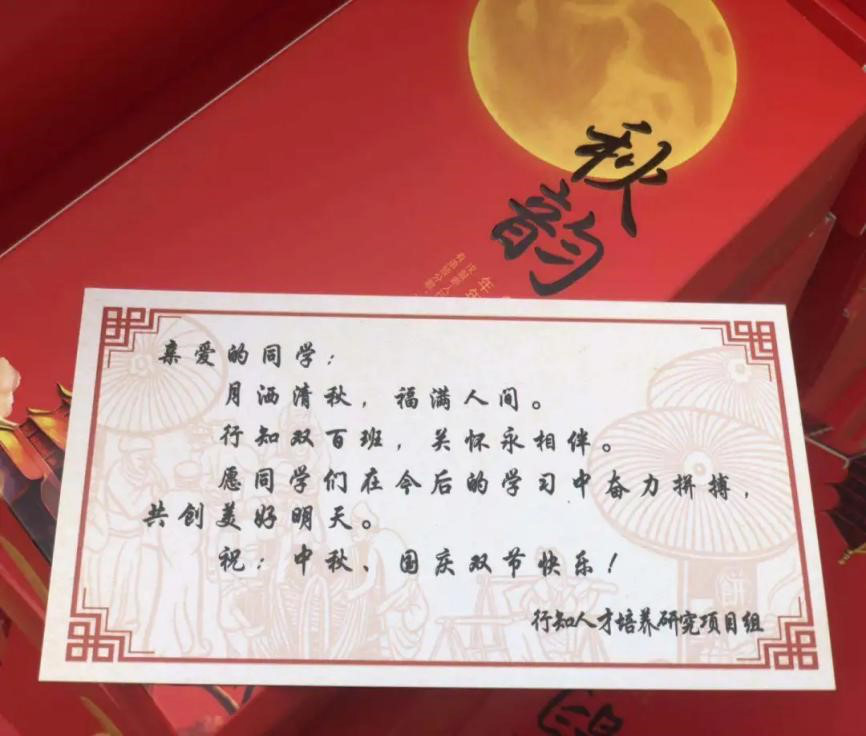 秋
韵
亲爱的同学：
月洒清秋，福满人间。
行知双百班，关怀永相伴。
愿同学们在今后的学习中奋力拼搏，
共创美好明天。
祝：中秋、国庆双节快乐！
行知人才培养研究项目组